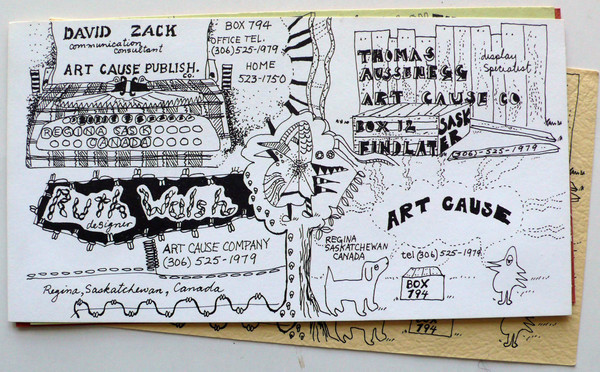 DAVID ZACK
communication
consultant
ART CAUSE PUBLISH.
CO.
BOX 794
OFFICE TEL.
(306) 525-1979
HOME
523-1750
REGINA SASK
CANADA
THOMAS
AUSSENEGG
display
Spicialist
ART CAUSE CO
BOX 12
FINDLATER
SASK
(306)-525-1979
Ruth Walsh
designer
ART CAUSE COMPANY
(306) 525-1979
Regina, Saskatchewan, Canada
ART CAUSE
REGINA
SASKATCHEWAN
CANADA
tel (306) 525-1979
BOX
794
BOX
194